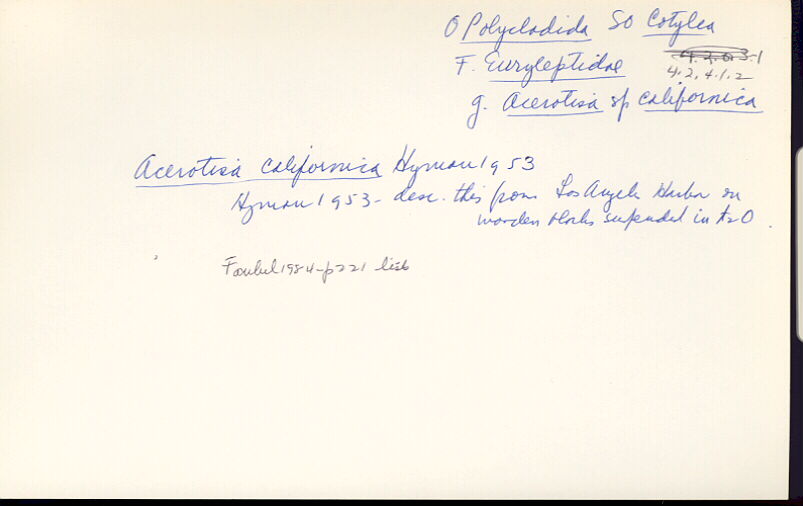 O Polycladida SO Cotylea
F. Euryleptidae
4.2.0.3.1
4.2.4.1.2
g. Acerotisa sp californica
Acerotisa californica Hyman 1953
Hyman 1953 - desc. this from Los Angeles Harbor on
wooden blocks suspended in H2O.
1984 - p221 lists